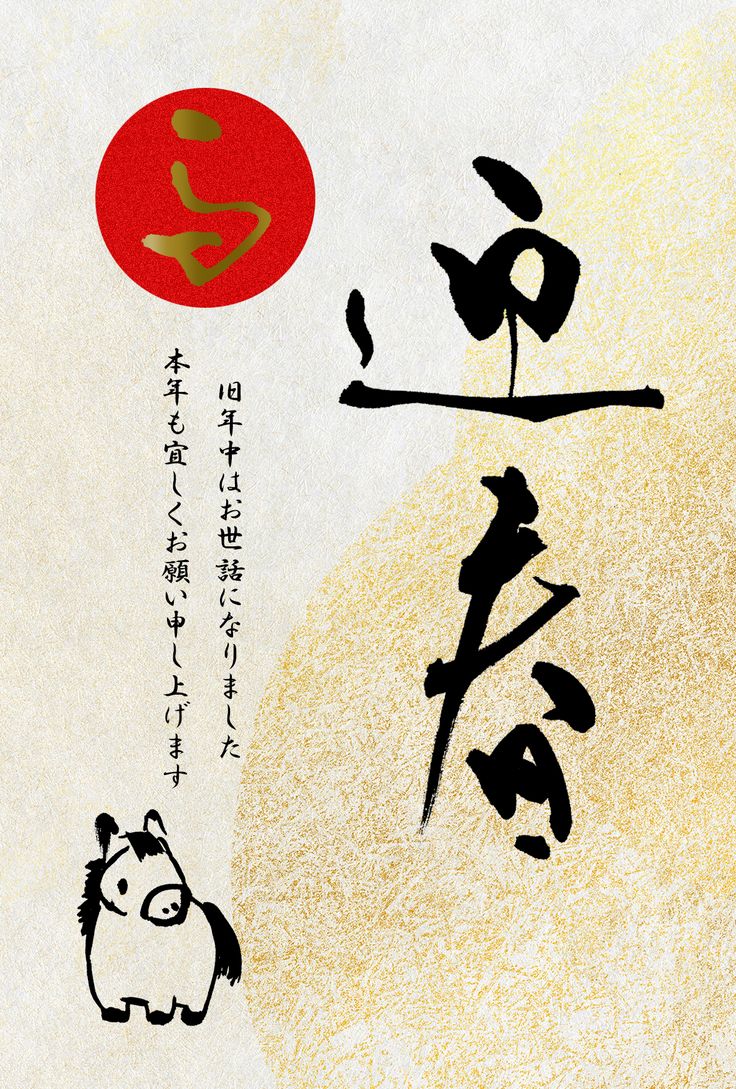 迎春
旧年中はお世話になりました
本年も宜しくお願い申し上げます
馬